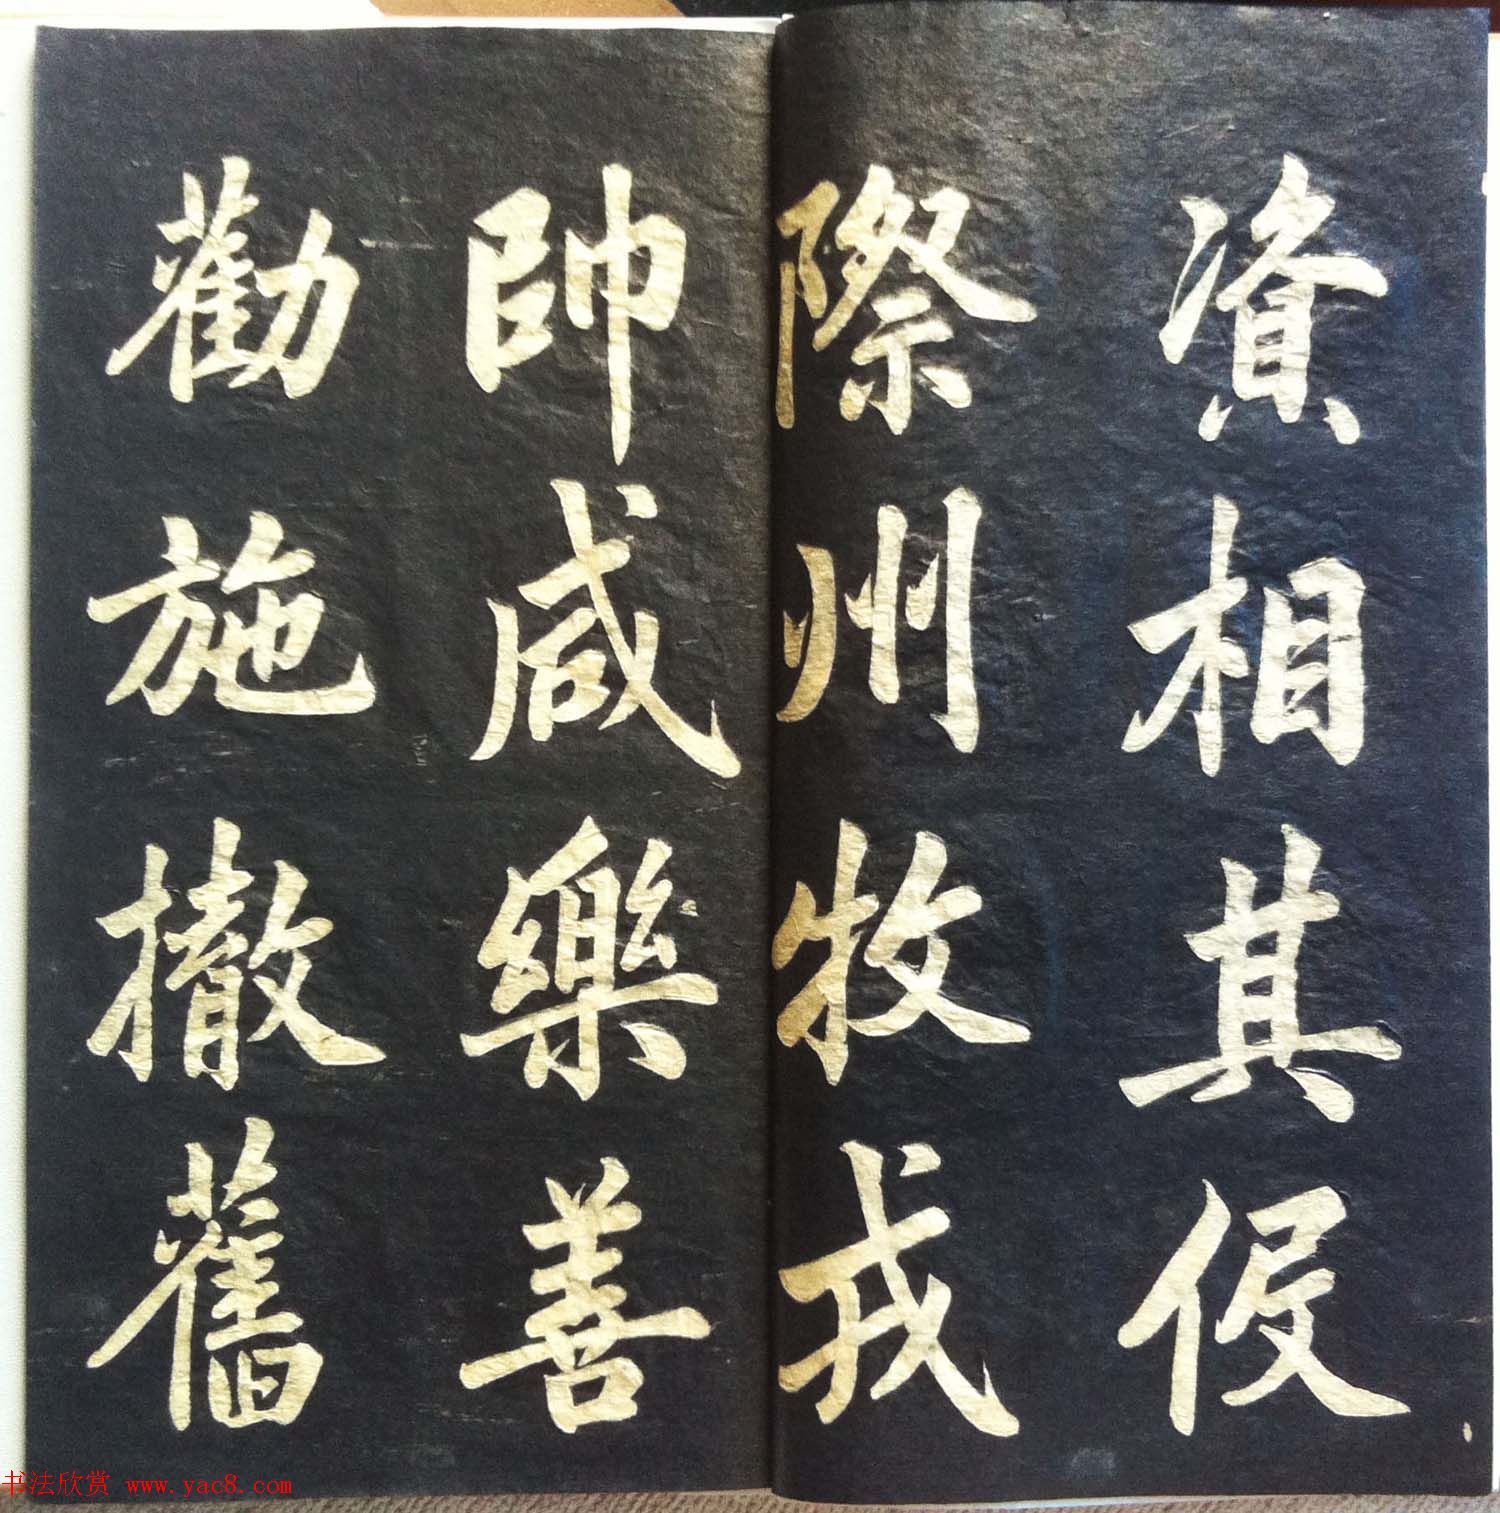 資相其假
際州牧戎
帥咸樂善
勸施撤舊
书法欣赏 www.yac8.com